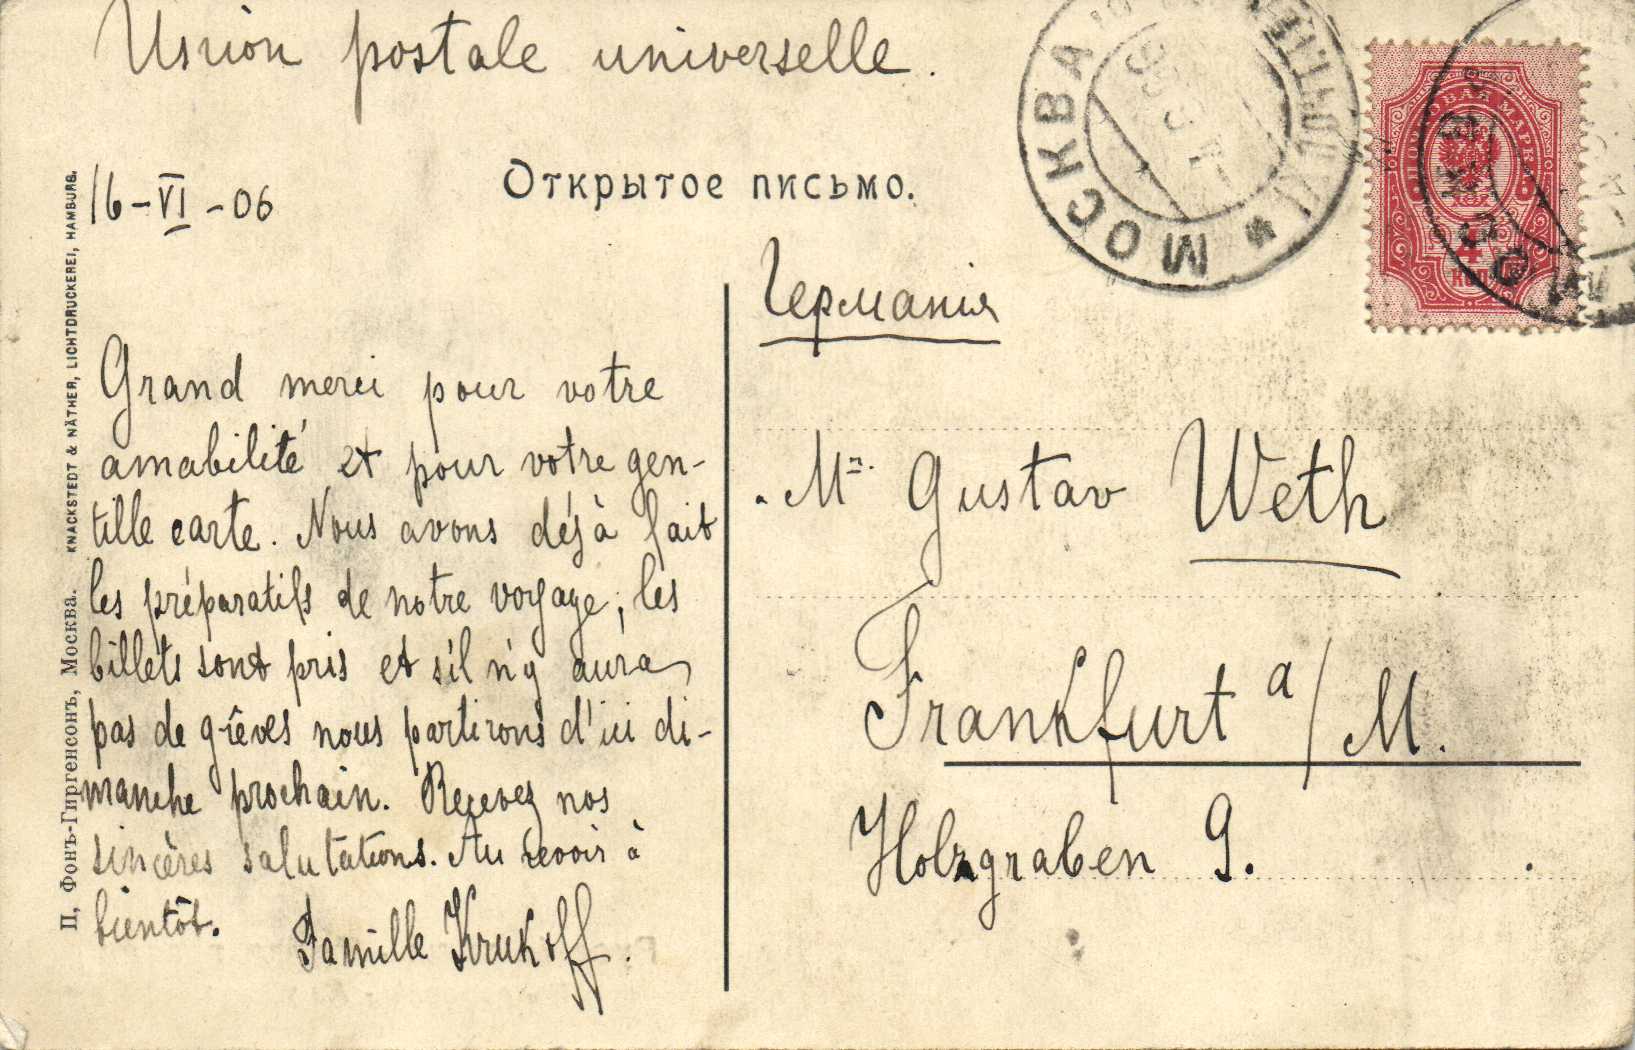 Union postale universelle.
16-VI-06
Открытое письмо.
МОСКВА
ПОЧТОВАЯ МАРКА
4
КОП.
МОСКВА
Германія
Grand merci pour votre
amabilité et pour votre gen-
tille carte. Nous avons déjà fait
les préparatifs de notre voyage, les
billets sont pris et s'il n'y aura
pas de grèves nous partirons d'ici di-
manche prochain. Recevez nos
sincères salutations. Au revoir à
bientôt.
Famille Krukoff.
Mr. Gustav Weth
Frankfurt a/M.
Holzgraben 9.
П, Фонъ-Гиргенсонъ, Москва. KNACKSTEDT & NÄTHER, LICHTDRUCKEREI, HAMBURG.